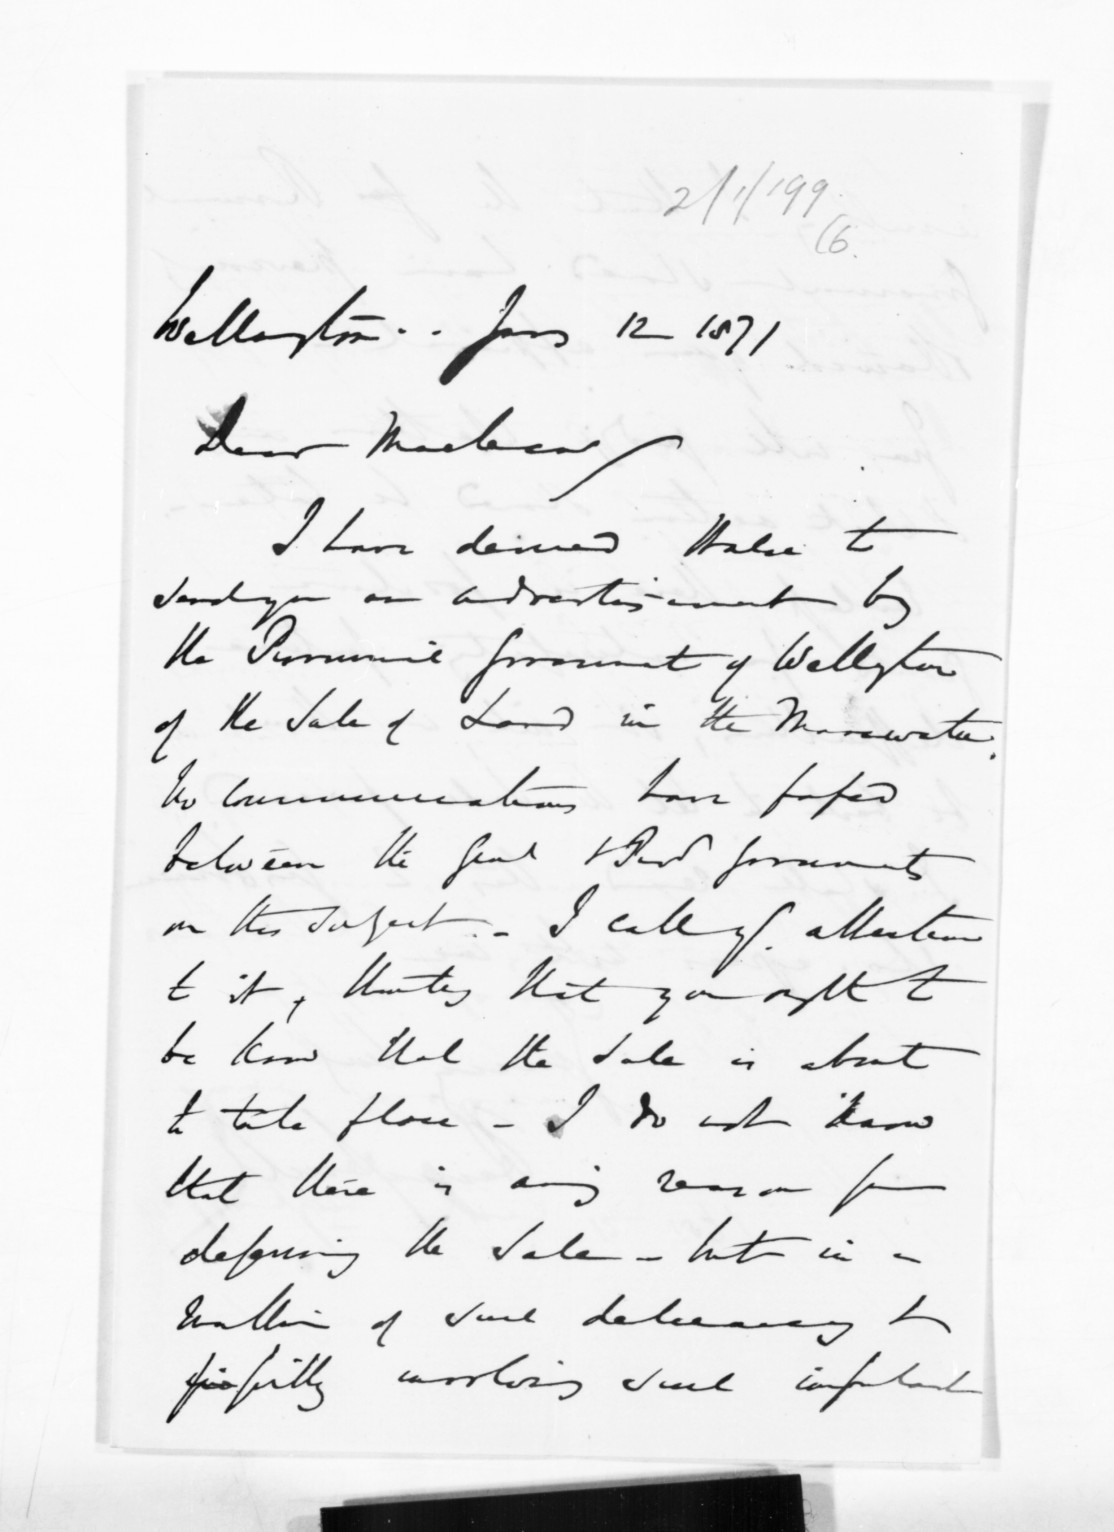 2/1/199
(6.
Wellington - Jany 12 1871
Dear Maclean
I have desired Halse to
send you an advertisement by
the Provincial Government of Wellington
of the Sale of Land in the Manawatu.
No communications have passed
between the Genl & Provl Governments
on this subject. - I call yr. attention
to it, thinking that you ought to
be know that the Sale is about
to take place - I do not know
that there is any reason for
deferring the Sale - but in a
matter of such delicacy &
possibly involving such important